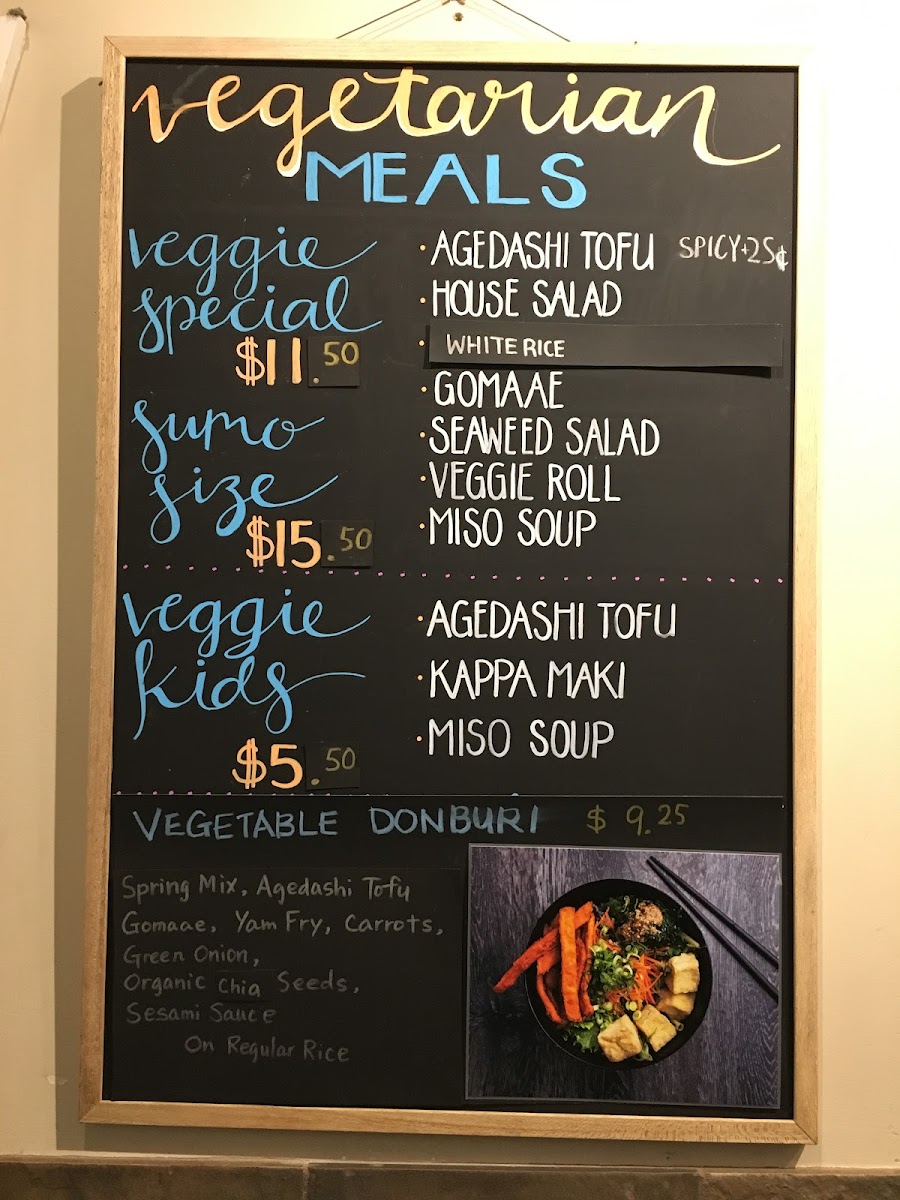 vegetarian
MEALS
veggie
special
$11.50
sumo
size
$15.50
· AGEDASHI TOFU SPICY+25¢
· HOUSE SALAD
· WHITE RICE
· GOMAAE
· SEAWEED SALAD
· VEGGIE ROLL
· MISO SOUP
veggie
kids
$5.50
· AGEDASHI TOFU
· KAPPA MAKI
· MISO SOUP
VEGETABLE DONBURI $ 9.25
Spring Mix, Agedashi Tofu
Gomaae, Yam Fry, Carrots,
Green Onion,
Organic Chia Seeds,
Sesami Sauce
On Regular Rice